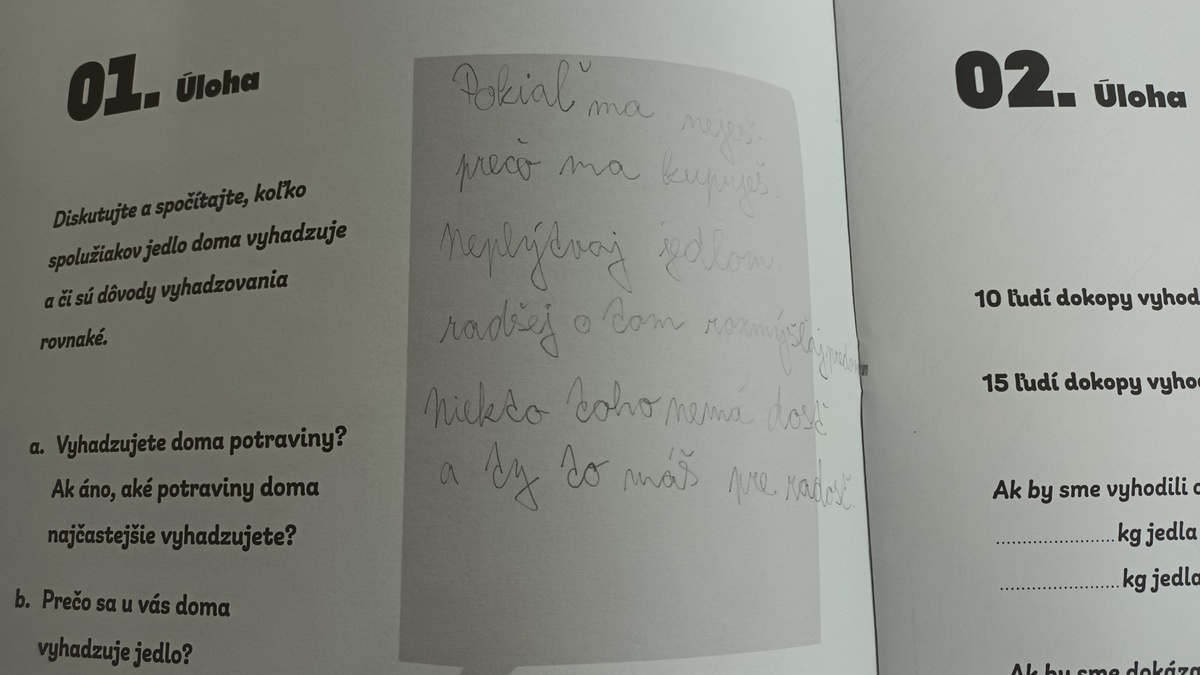 01. Úloha
Diskutujte a spočítajte, koľko
spolužiakov jedlo doma vyhadzuje
a či sú dôvody vyhadzovania
rovnaké.
a. Vyhadzujete doma potraviny?
Ak áno, aké potraviny doma
najčastejšie vyhadzujete?
b. Prečo sa u vás doma
vyhadzuje jedlo?
Pokiaľ ma neješ
prečo ma kupuješ
Neplýtvaj jedlom
radšej o tom rozmýšľaj predom
Niekto toho nemá dosť
a ty to máš pre radosť.
02. Úloha
10 ľudí dokopy vyhod
15 ľudí dokopy vyho
Ak by sme vyhodili
....................kg jedla
....................kg jedla
Ak by sme dokáza